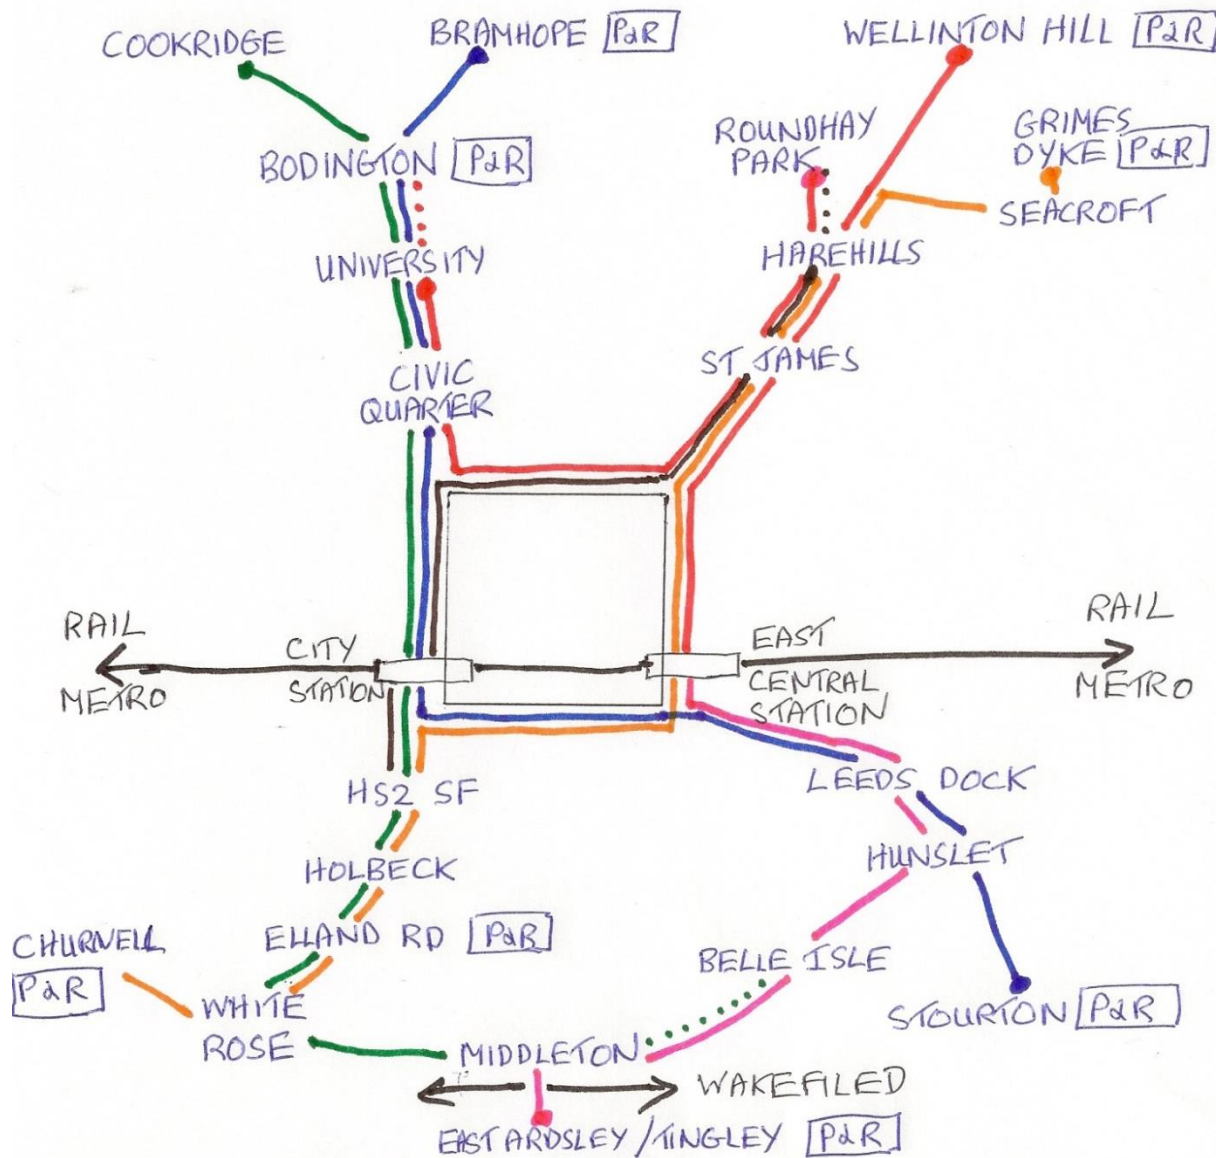 COOKRIDGE
BRAMHOPE P&R
WELLINTON HILL P&R
ROUNDHAY
PARK
GRIMES
DYKE P&R
BODINGTON P&R
SEACROFT
UNIVERSITY
HAREHILLS
ST JAMES
CIVIC
QUARTER
RAIL
METRO
CITY
STATION
EAST
CENTRAL
STATION
RAIL
METRO
HS2 SF
LEEDS DOCK
HOLBECK
HUNSLET
CHURWELL
P&R
ELLAND RD P&R
BELLE ISLE
WHITE
ROSE
STOURTON P&R
MIDDLETON
WAKEFILED
EAST ARDSLEY / TINGLEY P&R